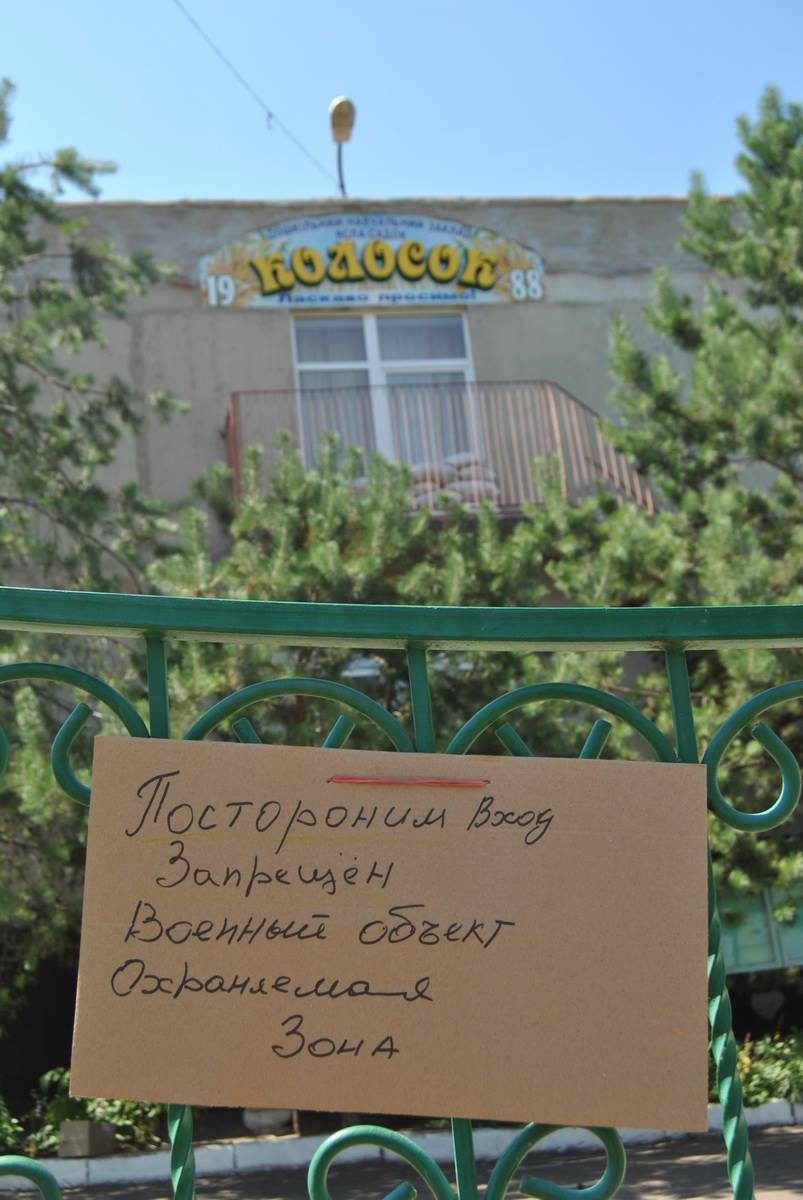 ДОШКІЛЬНИЙ НАВЧАЛЬНИЙ ЗАКЛАД
ЯСЛА САДОК
19 КОЛОСОК 88
Ласкаво просимо!
Постороним Вход
Запрещён
Военный объект
Охраняемая
Зона